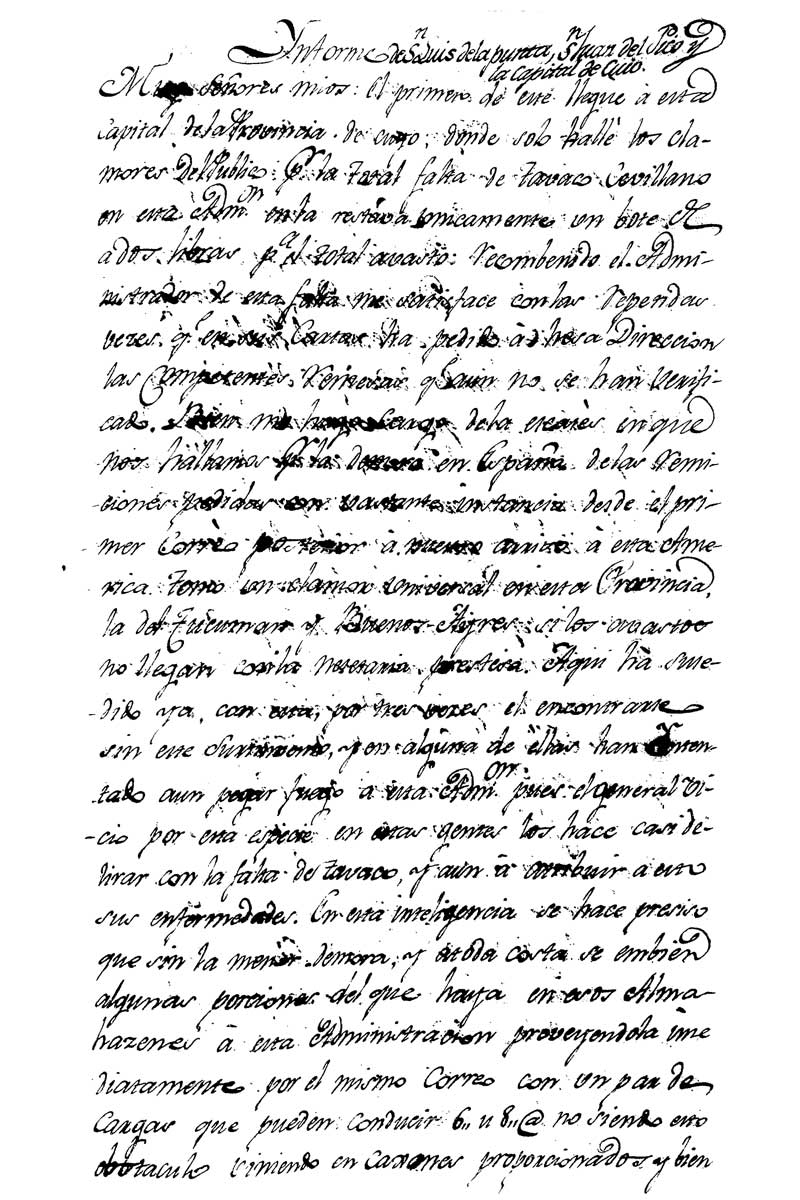 Informe de Sn. Luis de la punta, Sn. Juan del Pico y
la Capital de Cuio.
Muy Señores mios: el primero de este llegue à esta
Capital de la Provincia de cuyo, donde solo hallè los cla-
mores Del Publico pr. la total falta de tavaco Cevillano
en esta Admon. en la restava unicamente un bote
ados libras pa. el total avasto: Recombenido el Admi-
nistrador de esta falta me satisface con las Repetidas
vezes qe. en sus Cartas ha pedido à dhesa Direccion
las Competentes Remesas qe. aun no se han Verifi-
cado. Bien me hago Cargo de la escasès en que
nos hallamos pr. la demora en España de las Remi-
-ciones pedidas con vastante instancia desde el pri-
mer Corrèo posterior à nuestro arrivo à esta Ame-
rica. Temo un clamor universal en esta Provincia,
la del Tucuman y Buenos-Ayres si los avastos
no llegan con la Nesesaria presteza. Aqui hà suce-
-dido ya, con esta, por tres vezes el encontrarse
sin este Surtimiento, y en alguna de èllas han Inten-
tado aun pegar fuego a esta Admon. pues el general Vi-
-cio por esta especie en estas gentes los hace casi de-
lirar con la falta de tavaco, y aun à atribuir a esto
sus enfermedades. En esta inteligencia se hace presiso
que sin la menor demora, y atoda costa se embien
algunas porciones del que haya en esos Alma-
hazenes à esta Administracion proveyendola ime
diatamente por el mismo Correo con un par de
Cargas que pueden conducir 6,, u 8,, @ no siendo esto
obstaculo viniendo en Caxones proporcionados y bien